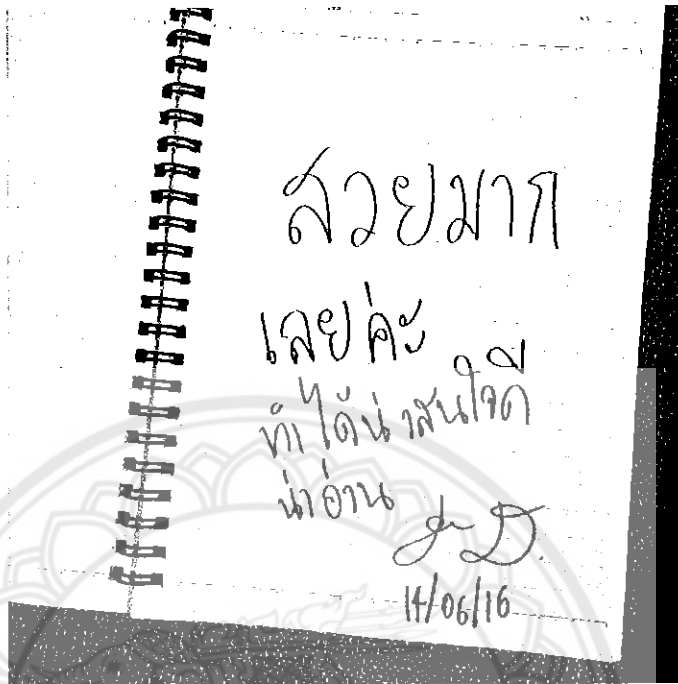 สวยมาก
เลยค่ะ
ทำได้น่าสนใจดี
น่าอ่าน
14/06/16